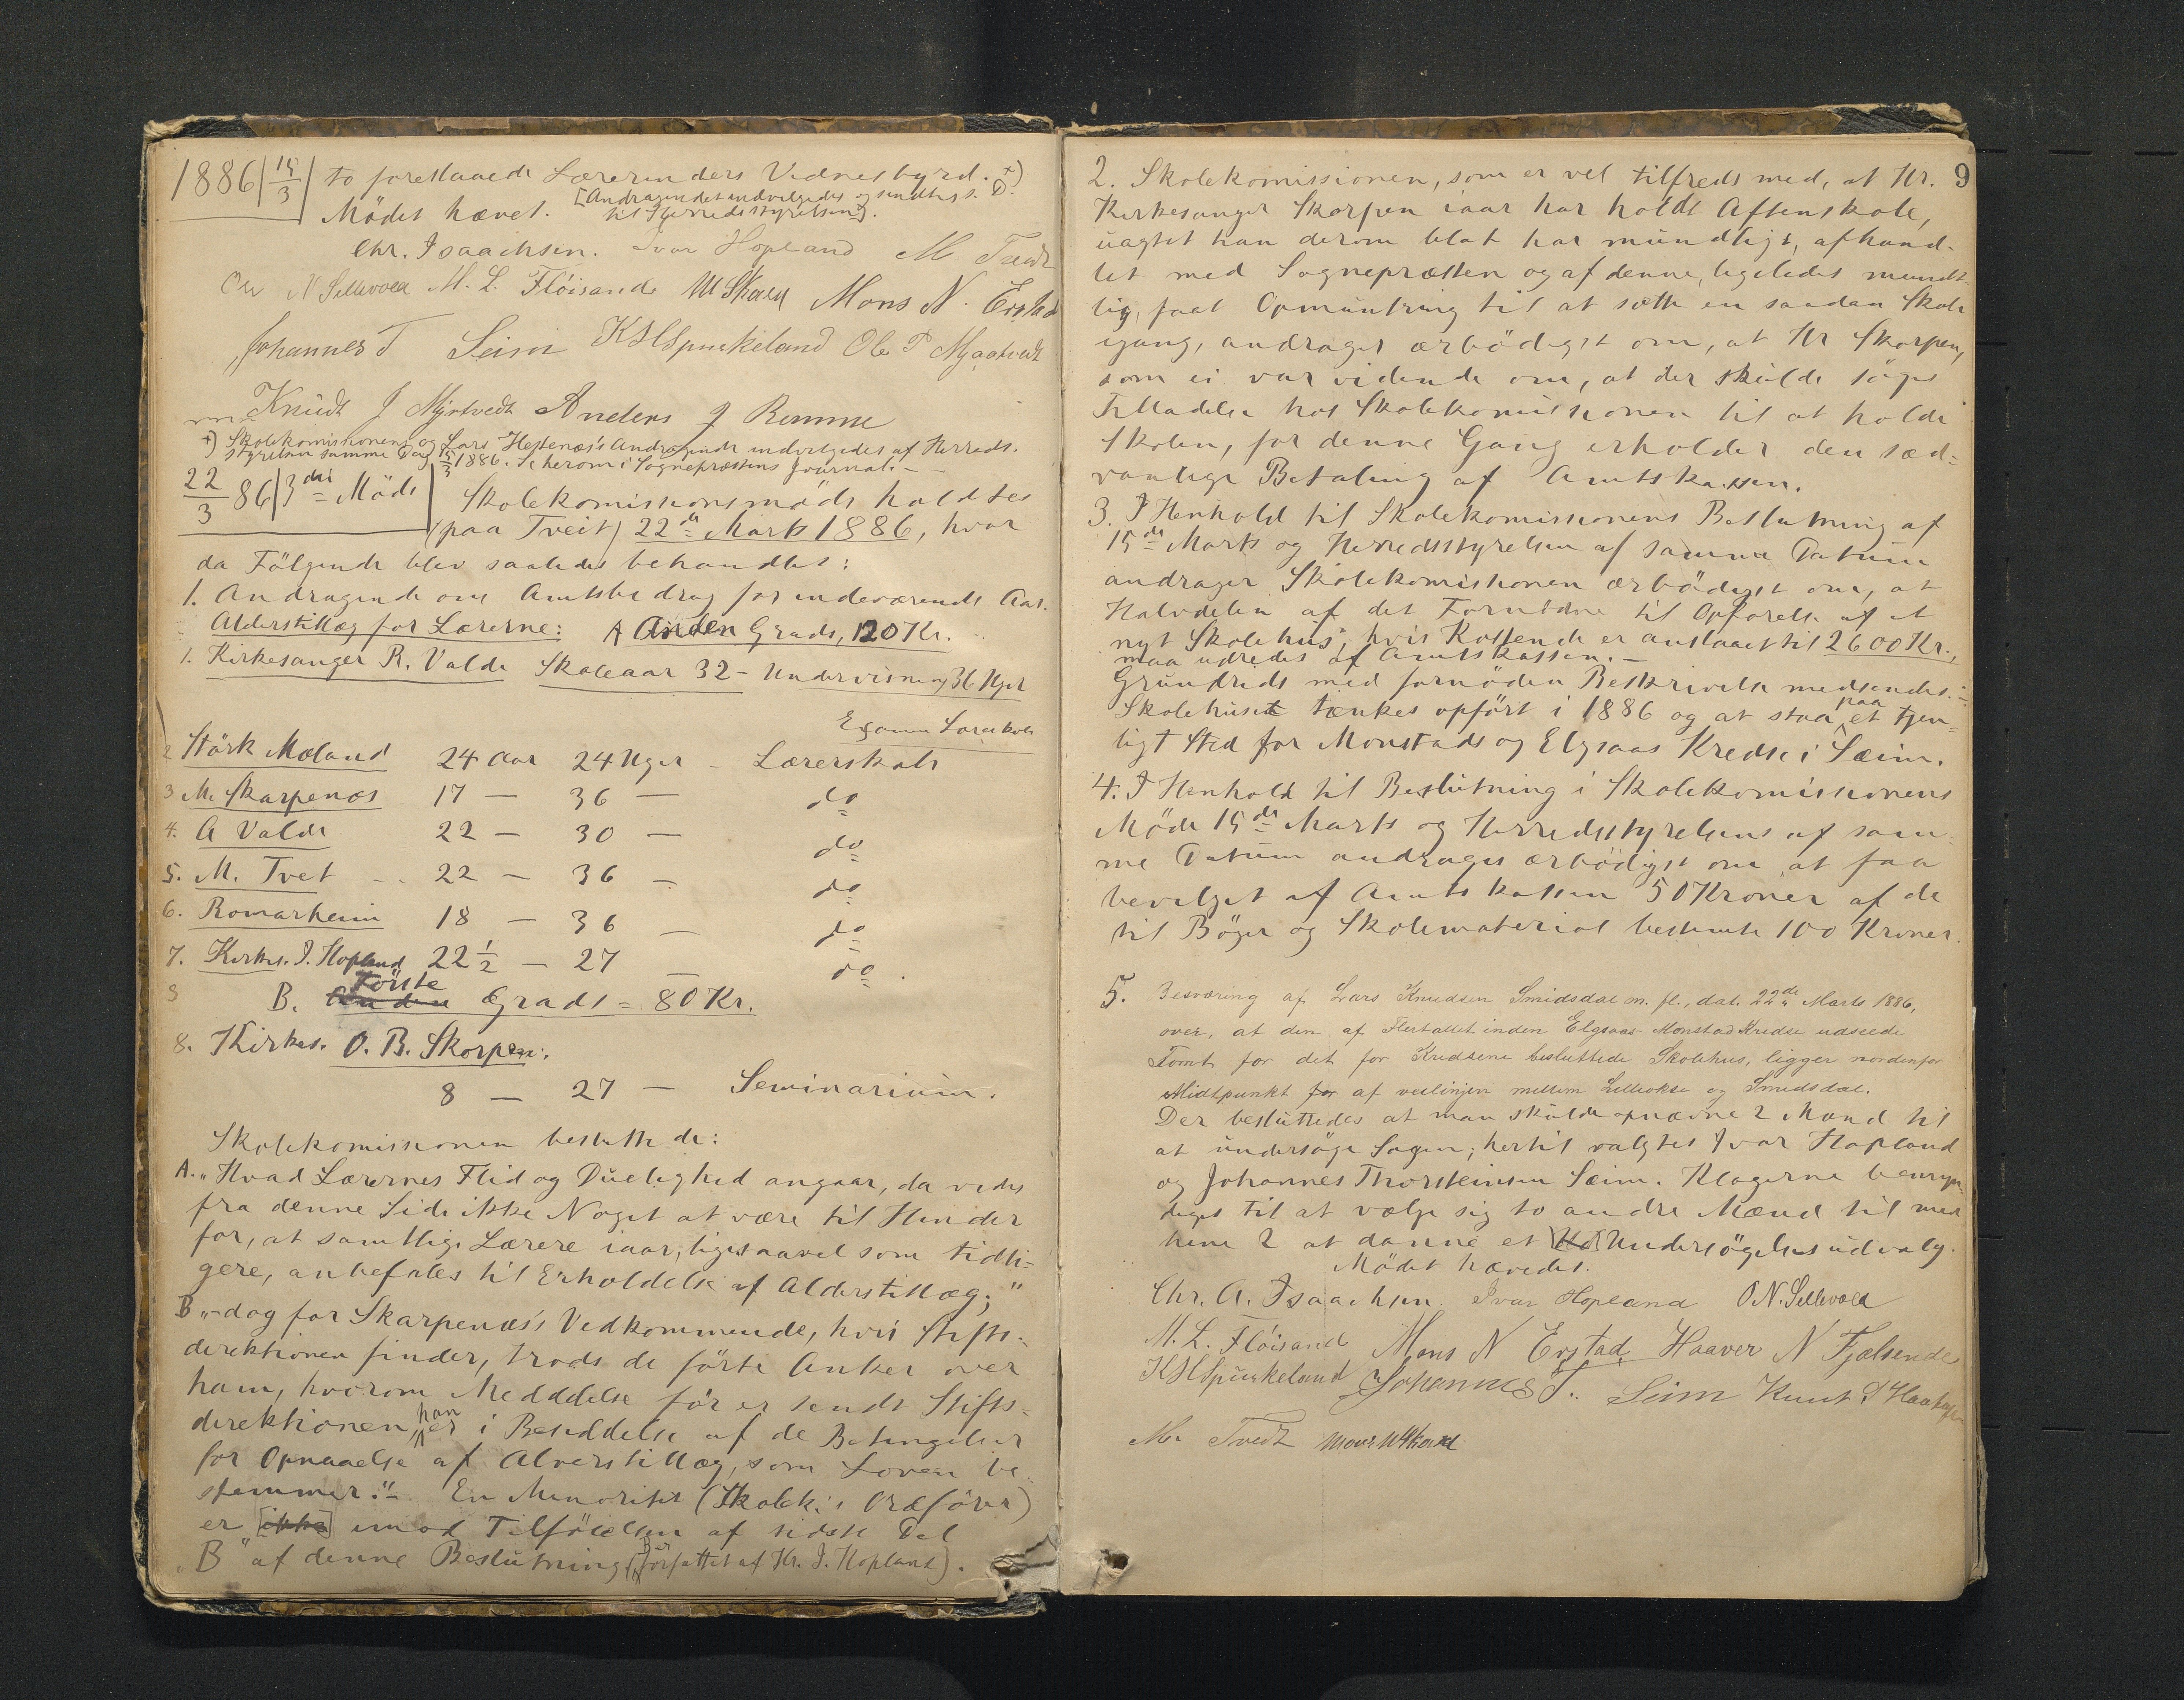 1886 | 15/3 | to foreslaaede Lærerinders Vidnesbyrd. +)
Mödet hævet. [Andragendet undvelgedes og sendtes s. D.
til Herredsstyrelsen].
Chr. Isaachsen. Ivar Hopland M Tvedt
Ole N Sellevold M. L. Flöisand M Skaar Mons N. Erstad
Johannes T Seim K S H Spurkeland Ole P Mjaatvedt
Knudt J Mjøtvedt Anders J Remme
+) Skolekomissionens og Lars Hestenæs's Andragende undvelgedes af Herreds-
styrelsen samme Dag 15/3 1886. Se herom i Sognepræstens Journal. –
22/3 86 | 3die Möde | Skolekomissionsmöde holdtes
(paa Tveit) 22de Marts 1886, hvor
da Fölgende blev saaledes behandlet:
1. Andragende om Amtsbidrag for indeværende Aar.
Alderstillæg for Lærerne: A Anden Grads, 120 Kr.
1. Kirkesanger R. Valde Skoleaar 32 – Undervisning 36 Uger
Examen Lærerskole
2 Störk Mæland 24 Aar 24 Uger – Lærerskole
3 M. Skarpenæs 17 – 36 – do
4. A Valde 22 – 30 – do
5. M. Tvet – 22 – 36 – do
6. Romarheim 18 – 36 – do
7. Kirkes. I. Hopland 22 1/2 – 27 – do.
Förste
B. Anden Grads = 80 Kr.
8. Kirkes. O. B. Skorpen.
8 – 27 – Seminarium.
Skolekomissionen besluttede:
A. „Hvad Lærernes Flid og Duelighed angaar, da vides
fra denne Side ikke Noget at være til Hinder
for, at samtlige Lærere iaar, ligesaavel som tidli-
gere, anbefales til Erholdelse af Alderstillæg;"
B „– dog for Skarpenæs's Vedkommende, hvis Stifts-
direktionen finder, trods de förte Anker over
ham, hvorom Meddelelse för er sendt Stifts-
direktionen, han er i Besiddelse af de Betingelser
for Opnaaelse af Alderstillæg, som Loven be-
stemmer." – En Minoritet (Skolek.'s Ordförer)
er [ikke] imod Tilföielsen af sidste Del
„B" af denne Beslutning (B er forfattet af Kr. I. Hopland).
9
2. Skolekomissionen, som er vel tilfreds med, at Hr.
Kirkesanger Skorpen iaar har holdt Aftenskole,
uagtet han derom blot har mundtligt afhand-
let med Sognepræsten og af denne, ligeledes mundt-
lig, faat Opmuntring til at sætte en saadan Skole
igang, andrager ærbödigst om, at Hr Skorpen,
som ei var vidende om, at der skulde söges
Tilladelse hos Skolekomissionen til at holde
Skolen, for denne Gang erholder den sæd-
vanlige Betaling af Amtskassen.
3. I Henhold til Skolekomissionens Beslutning af
15de Marts og Herredsstyrelsen af samme Datum
andrager Skolekomissionen ærbödigst om, at
Halvdelen af det Fornödne til Opförelse af et
nyt Skolehus, hvis Kostende er anslaaet til 2600 Kr.,
maa udredes af Amtskassen. –
Grundrids med fornöden Beskrivelse medsendes. –
Skolehuset tænkes opfört i 1886 og at staa paa et tjen-
ligt Sted for Monstads og Elgsaas Kredse i Sæim.
4. I Henhold til Beslutning i Skolekomissionens
Möde 15de Marts og Herredsstyrelsens af sam-
me Datum andrages ærbödigst om at faa
bevilget af Amtskassen 50 Kroner af de
til Böger og Skolemateriel bestemte 100 Kroner.
5. Besværing af Lars Knudsen Smidsdal m. fl., dat. 22de Marts 1886,
over, at den af Flertallet inden Elgsaas-Monstad Kredse udseede
Tomt for det for Kredsene besluttede Skolehus, ligger nordenfor
Midtpunkt for af veilinjen mellem Lilleokse og Smidsdal.
Der besluttedes at man skulde opnævne 2 Mænd til
at undersöge Sagen; hertil valgtes Ivar Hopland
og Johannes Thorsteinsen Sæim. Klagerne bemyn-
diges til at vælge sig to andre Mænd til med
hine 2 at danne et Undersögelsesudvalg.
Mödet hævedes.
Chr. A. Isaachsen. Ivar Hopland O. N. Sellevold
M. L. Flöisand Mons N Erstad Haaver N Fjælsende
K S H Spurkeland Johannes T. Seim Knut
M. Tvedt Mons M Skaar